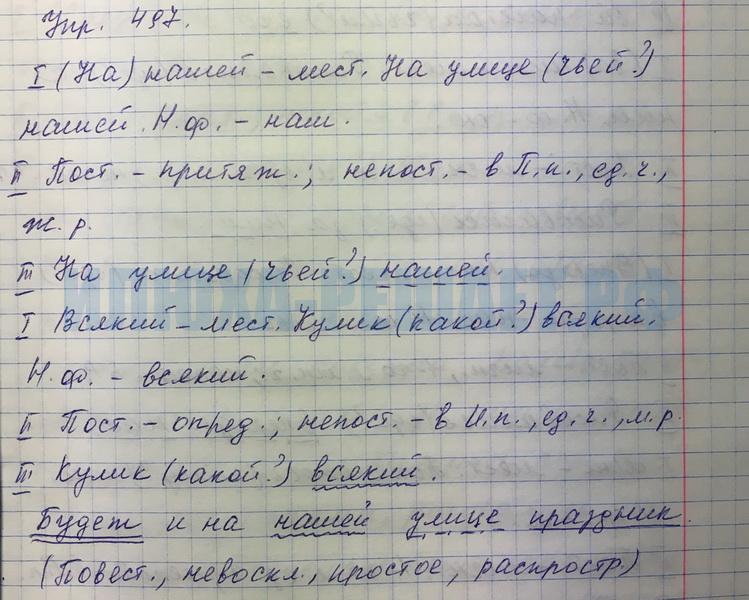 Упр. 497.
I (На) нашей – мест. На улице (чьей?)
нашей. Н.ф. – наш.
II Пост. – притяж.; непост. – в П.п., ед.ч.,
ж.р.
III На улице (чьей?) нашей.
I Всякий – мест. Кулик (какой?) всякий.
Н.ф. – всякий.
II Пост. – опред.; непост. – в И.п., ед.ч., м.р.
III Кулик (какой?) всякий.
Будет и на нашей улице праздник.
(Повест., невоскл., простое, распростр.)